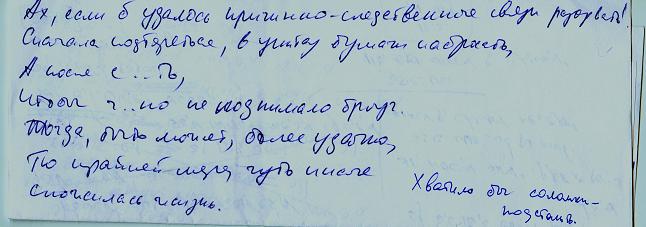 Ах, если б удалось причинно-следственные связи разорвать!
Сначала подтереться, в унитаз бумаги набросать,
А после с...ть,
Чтобы г..но не поднимало брызг.
Тогда, быть может, более удачно,
По крайней мере, чуть иначе
сложилась жизнь.
Хватило бы соломки-
подстать.